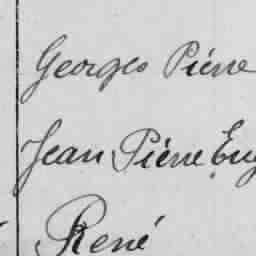 Georges Piérre
Jean Piérre Eug
René